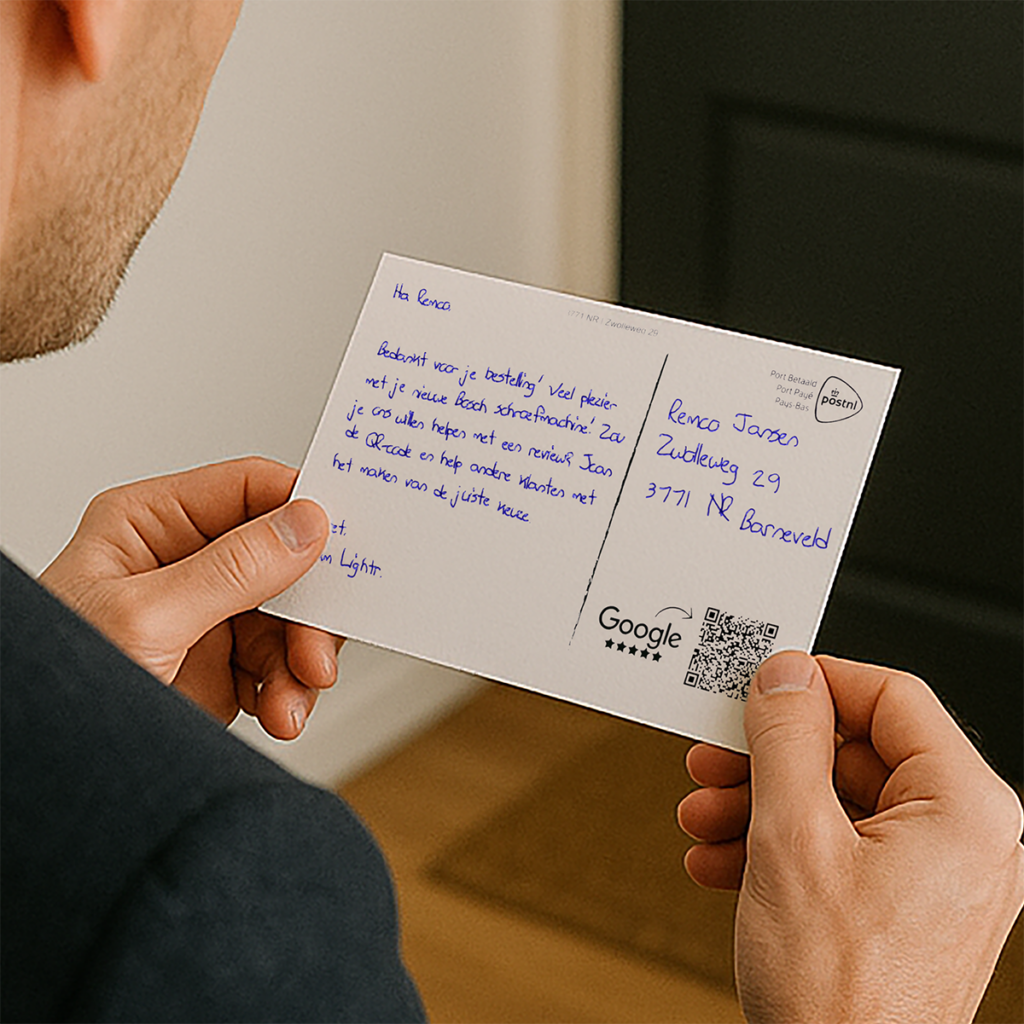 Ha Remco
Bedankt voor je bestelling! Veel plezier
met je nieuwe Bosch schroefmachine! Zou
je ons willen helpen met een review? Scan
de QR-code en help andere klanten met
het maken van de juiste keuze
et.
Lightr.
3771 NR | Zwolleweg 29
Port Betaald
Port Payé
Pays-Bas
postnl
Remco Jansen
Zwolleweg 29
3771 NR Barneveld
Google